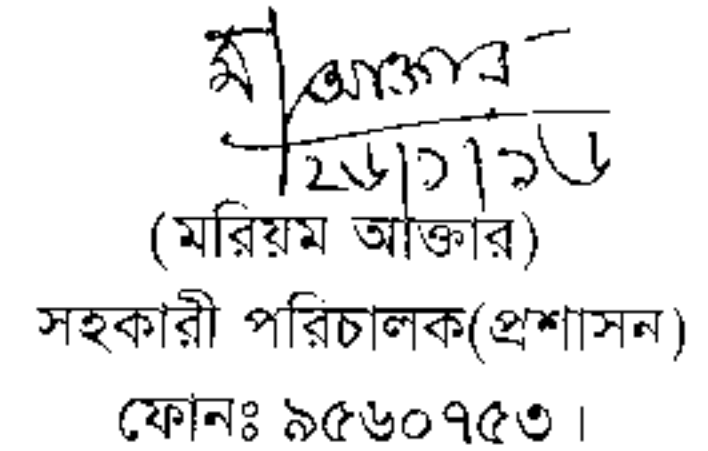 আক্তার
২৬/১/১৬
(মরিয়ম আক্তার)
সহকারী পরিচালক(প্রশাসন)
ফোনঃ ৯৫৬০৭৫৩।